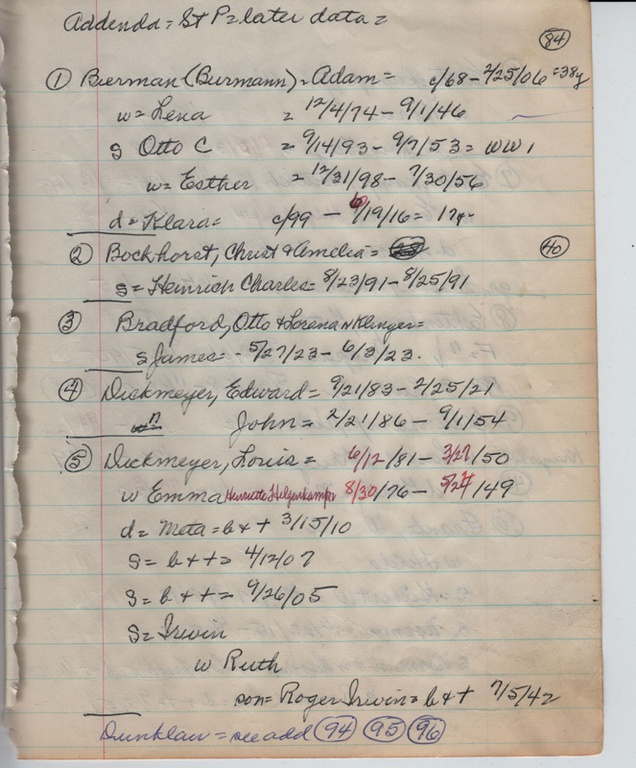 Addenda = St P = later data =
84
① Bierman (Burmann) = Adam = c/68 - 2/25/06 = 38y
w = Lena = 12/4/74 - 9/1/46
s Otto C = 9/14/93 - 9/7/53 = WW 1
w = Esther = 12/31/98 - 7/30/56
d = Klara = c/99 - 6/19/16 = 17y
② Bockhorst, Christ & Amelia = 40
s = Heinrich Charles = 8/23/91 - 8/25/91
③ Bradford, Otto & Lorena n Klinger =
s James = - 5/27/23 - 6/3/23.
④ Dickmeyer, Edward = 9/21/83 - 2/25/21
" John = 2/21/86 - 9/1/54
⑤ Dickmeyer, Louis = 6/12/81 - 3/27/50
w Emma Henriette Helgenkamp 8/30/76 - 5/27/49
d = Meta = b & + 3/15/10
s = b & + = 4/12/07
s = b & + = 9/26/05
s = Irwin
w Ruth
son = Roger Irwin = b & + 7/5/42
Dunklau = see add 94 95 96